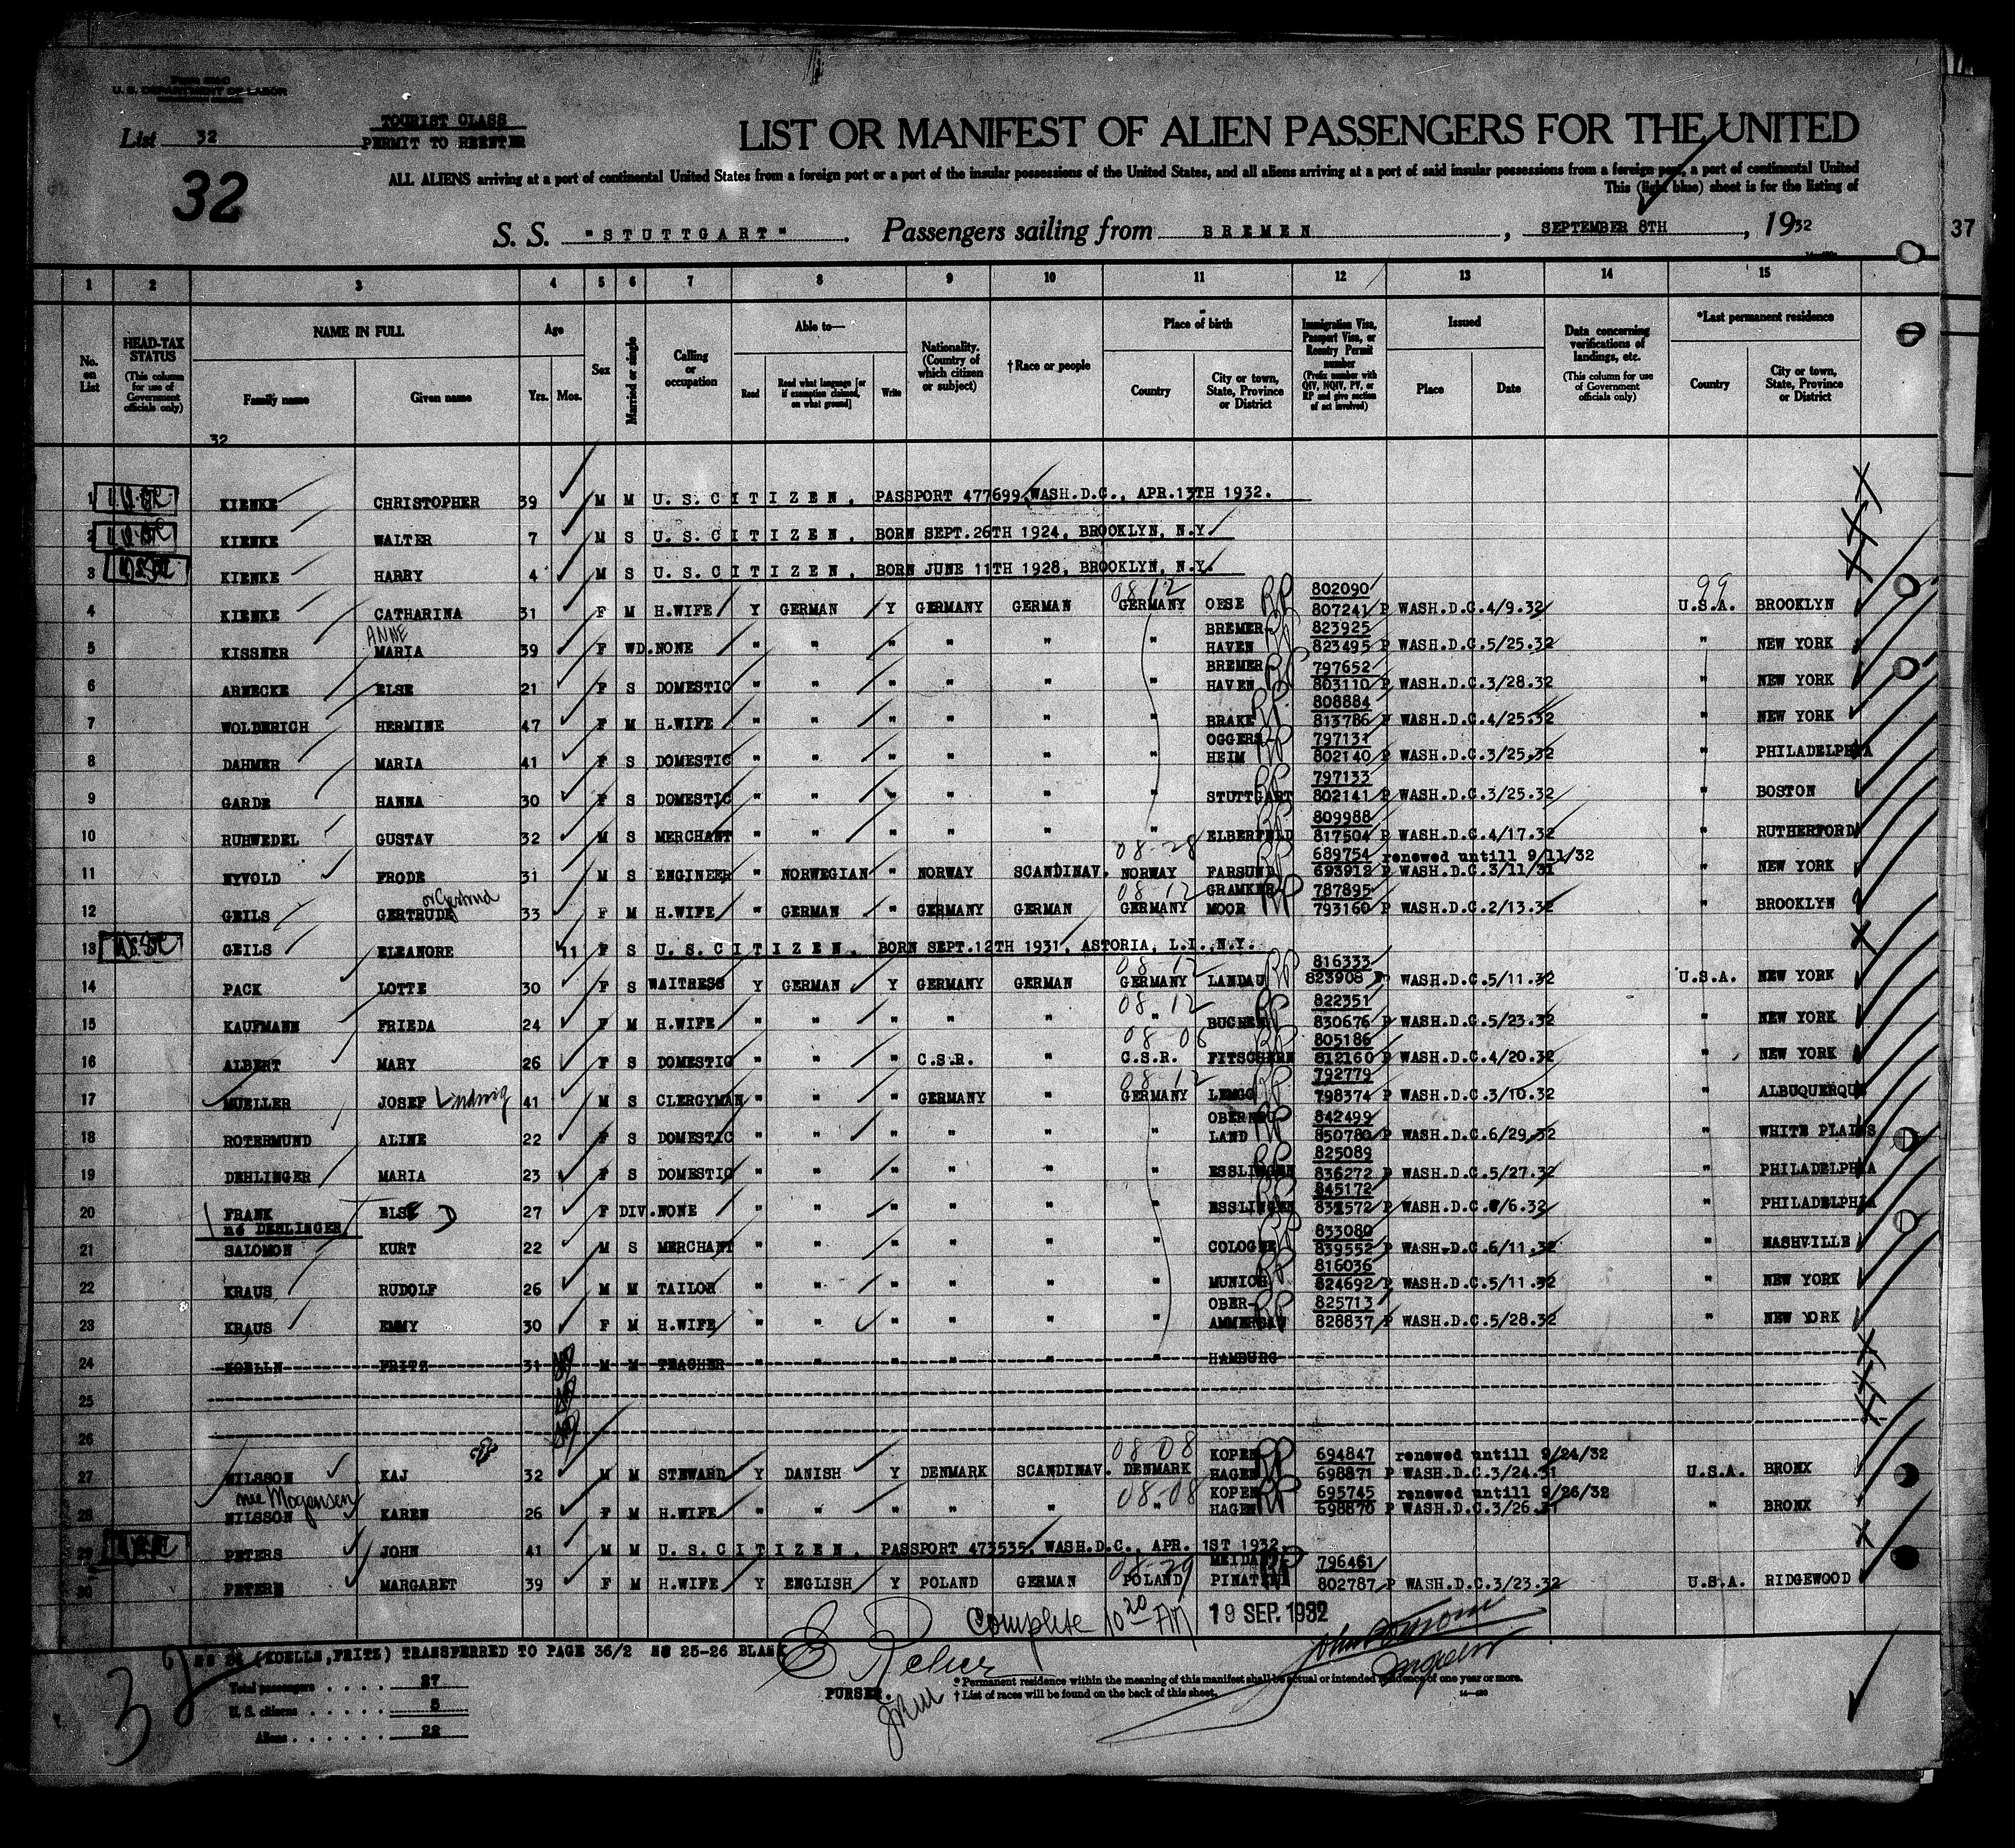 U. S. DEPARTMENT OF LABOR
List 32
TOURIST CLASS
PERMIT TO REENTER
32
LIST OR MANIFEST OF ALIEN PASSENGERS FOR THE UNITED
ALL ALIENS arriving at a port of continental United States from a foreign port or a port of the insular possessions of the United States, and all aliens arriving at a port of said insular possessions from a foreign port, a port of continental United
This (light blue) sheet is for the listing of
S. S. "STUTTGART". Passengers sailing from BREMEN, SEPTEMBER 8TH, 1932
37
1 2 3 4 5 6 7 8 9 10 11 12 13 14 15
No. on List
HEAD-TAX STATUS (This column for use of Government officials only)
NAME IN FULL Family name Given name
Age Yrs. Mos.
Sex
Married or single
Calling or occupation
Able to— Read Read what language [or if exemption claimed, on what ground] Write
Nationality. (Country of which citizen or subject)
†Race or people
Place of birth Country City or town, State, Province or District
Immigration Visa, Passport Visa, or Reentry Permit number (Prefix number with QIV, NQIV, PV, or RP and give section of act involved)
Issued Place Date
Data concerning verifications of landings, etc. (This column for use of Government officials only)
*Last permanent residence Country City or town, State, Province or District
32
1 KIENKE CHRISTOPHER 39 M M U.S.CITIZEN, PASSPORT 477699, WASH.D.C., APR.13TH 1932.
2 KIENKE WALTER 7 M S U.S.CITIZEN, BORN SEPT.26TH 1924, BROOKLYN, N.Y.
3 KIENKE HARRY 4 M S U.S.CITIZEN, BORN JUNE 11TH 1928, BROOKLYN, N.Y.
08-12 802090 99
4 KIENKE CATHARINA 31 F M H.WIFE Y GERMAN Y GERMANY GERMAN GERMANY OESE RP 807241 P WASH.D.C.4/9.32 U.S.A. BROOKLYN
ANNE BREMER- 823925
5 KISSNER MARIA 39 F WD. NONE " " " " " " HAVEN RP 823495 P WASH.D.C.5/25.32 " NEW YORK
BREMER 797652
6 ARNECKE ELSE 21 F S DOMESTIC " " " " " " HAVEN RP 803110 P WASH.D.C.3/28.32 " NEW YORK
808884
7 WOLDERICH HERMINE 47 F M H.WIFE " " " " " " BRAKE RP 813786 P WASH.D.C.4/25.32 " NEW YORK
OGGERS- 797131
8 DAHMER MARIA 41 F S DOMESTIC " " " " " " HEIM RP 802140 P WASH.D.C.3/25.32 " PHILADELPHIA
797133
9 GARDE HANNA 30 F S DOMESTIC " " " " " " STUTTGART RP 802141 P WASH.D.C.3/25.32 " BOSTON
809988
10 RUHWEDEL GUSTAV 32 M S MERCHANT " " " " " " ELBERFELD RP 817504 P WASH.D.C.4/17.32 " RUTHERFORD
08-28 689754 renewed untill 9/11/32
11 NYVOLD FRODE 31 M S ENGINEER " NORWEGIAN " NORWAY SCANDINAV. NORWAY FARSUND RP 693912 P WASH.D.C.3/11/31 " NEW YORK
or Gertrud 08-12 GRAMKER- 787895
12 GEILS GERTRUDE 33 F M H.WIFE " GERMAN " GERMANY GERMAN GERMANY MOOR RP 793160 P WASH.D.C.2/13.32 " BROOKLYN
13 GEILS ELEANORE 11 F S U.S.CITIZEN, BORN SEPT.12TH 1931, ASTORIA, L.I., N.Y.
08-12 816333
14 PACK LOTTE 30 F S WAITRESS Y GERMAN Y GERMANY GERMAN GERMANY LANDAU RP 823908 P WASH.D.C.5/11.32 U.S.A. NEW YORK
08-12 822351
15 KAUFMANN FRIEDA 24 F M H.WIFE " " " " " " BUCHEN RP 830676 P WASH.D.C.5/23.32 " NEW YORK
08-06 805186
16 ALBERT MARY 26 F S DOMESTIC " " " C.S.R. " C.S.R. RP 812160 P WASH.D.C.4/20.32 " NEW YORK
08-12 792779
17 MUELLER JOSEF Ludwig 41 M S CLERGYMAN " " " GERMANY " GERMANY LEMGO RP 798374 P WASH.D.C.3/10.32 " ALBUQUERQUE
OBERNEU 842499
18 ROTERMUND ALINE 22 F S DOMESTIC " " " " " " LAND RP 850780 P WASH.D.C.6/29.32 " WHITE PLAINS
825089
19 DEHLINGER MARIA 23 F S DOMESTIC " " " " " " ESSLINGEN RP 836272 P WASH.D.C.5/27.32 " PHILADELPHIA
845172
20 FRANK ELSE 27 F DIV. NONE " " " " " " ESSLINGEN RP WASH.D.C. /6.32 " PHILADELPHIA
né DEHLINGER 833080
21 SALOMON KURT 22 M S MERCHANT " " " " " " COLOGNE RP 839552 P WASH.D.C.6/11.32 " NASHVILLE
816036
22 KRAUS RUDOLF 26 M M TAILOR " " " " " " MUNICH RP 824692 P WASH.D.C.5/11.32 " NEW YORK
OBER- 825713
23 KRAUS EMMY 30 F M H.WIFE " " " " " " AMMERGAU RP 828837 P WASH.D.C.5/28.32 " NEW YORK
24 KOELLN FRITZ 31 M M TEACHER " " " " " " HAMBURG
25
26
08-08 KOPEN 694847 renewed untill 9/24/32
27 NILSSON KAJ 32 M M STEWARD Y DANISH Y DENMARK SCANDINAV. DENMARK HAGEN RP 698871 P WASH.D.C.3/24.31 U.S.A. BRONX
nee Mogensen 08-08 KOPEN 695745 renewed untill 9/26/32
28 NILSSON KAREN 26 F M H.WIFE " " " " " " HAGEN RP 698870 P WASH.D.C.3/26.31 " BRONX
29 PETERS JOHN 41 M M U.S.CITIZEN, PASSPORT 473535, WASH.D.C., APR. 1ST 1932
08-29 796461
30 PETERS MARGARET 39 F M H.WIFE Y ENGLISH Y POLAND GERMAN POLAND RP 802787 P WASH.D.C.3/23.32 U.S.A. RIDGEWOOD
Complete 10 20 AM 19 SEP. 1932
No 24 (KOELLN,FRITZ) TRANSFERRED TO PAGE 36/2 No 25-26 BLANK
32
Total passengers 27
U. S. citizens 5
Aliens 22
PURSER.
* Permanent residence within the meaning of this manifest shall be actual or intended residence of one year or more.
† List of races will be found on the back of this sheet.